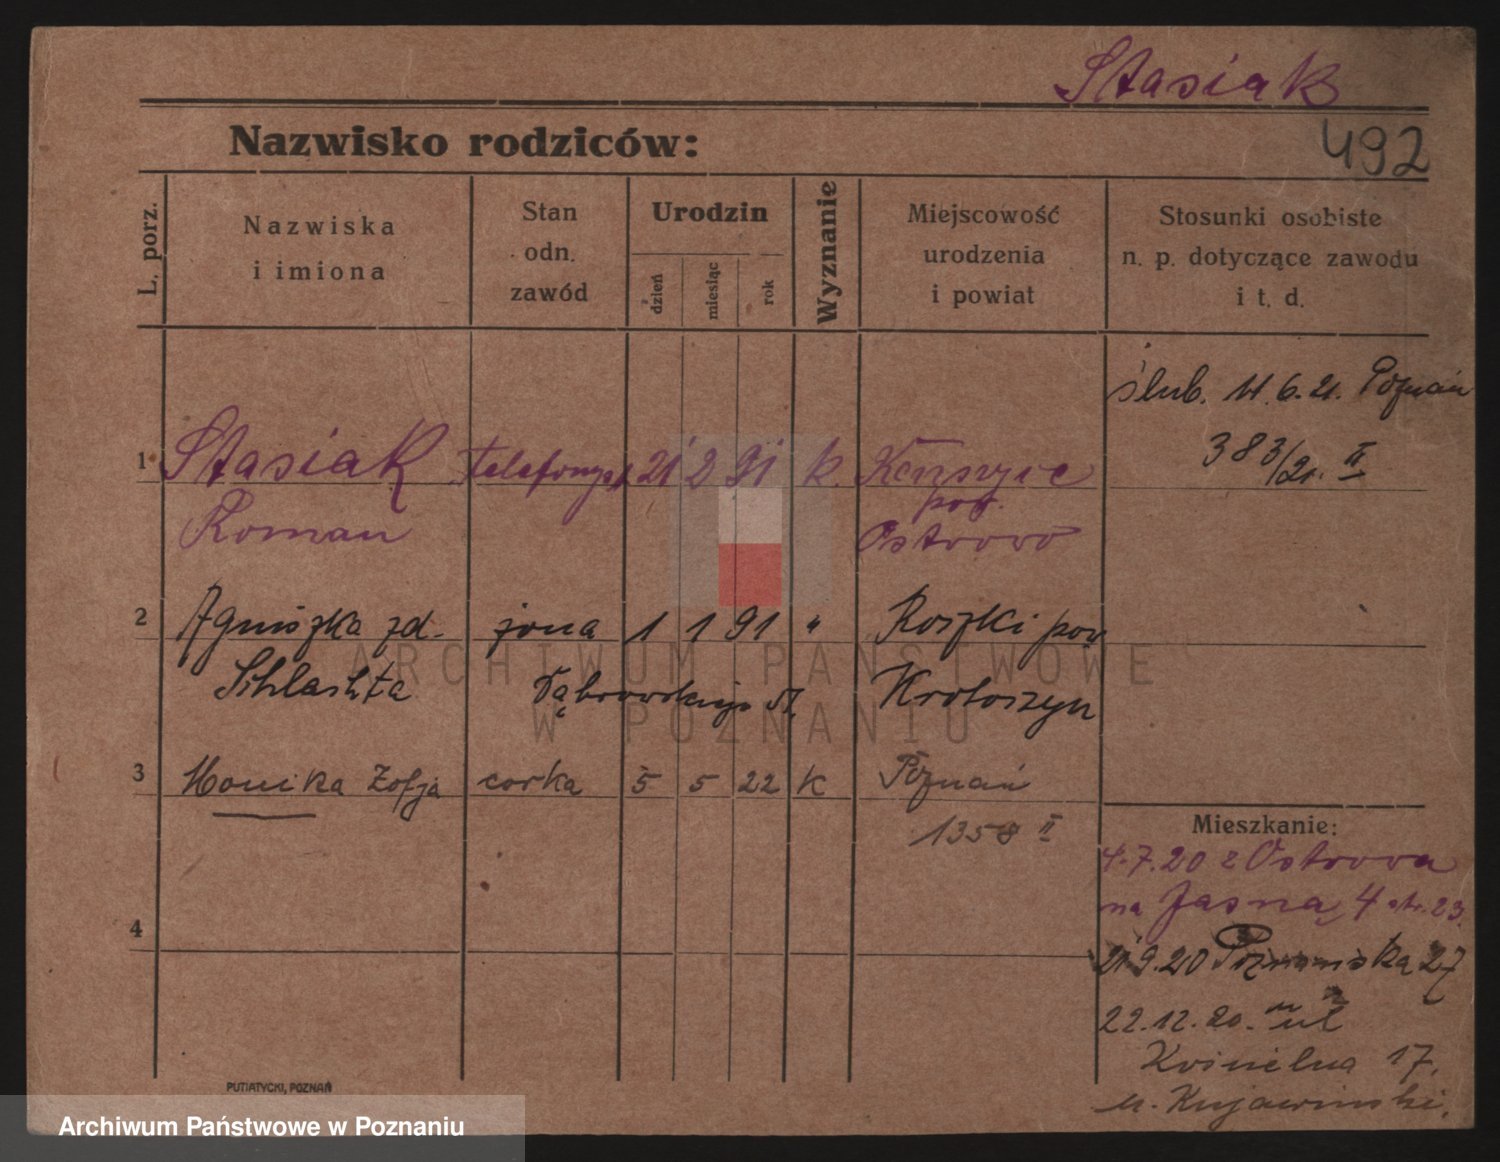 Stasiak
492
Nazwisko rodziców:
L. porz.
Nazwiska
i imiona
Stan
odn.
zawód
Urodzin
dzień
miesiąc
rok
Wyznanie
Miejscowość
urodzenia
i powiat
Stosunki osobiste
n. p. dotyczące zawodu
i t. d.
ślub. 11.6.21. Poznań
383/21. II
1 Stasiak Telefonyst 21 2 91 k.
pow.
Roman Ostrowo
2 Agniszka zd. żona 1 1 91 " Roszki pow
Dąbrowskiego Krotoszyn
3 Monika Zofja corka 5 5 22 k Poznań
1358 II
4
Mieszkanie:
4.7.20 z Ostrowa
na Jasna 4 str. 23.
21.9.20 Poznanska 27
22.12.20. ul
17.
u. Kujawinski,
PUTIATYCKI, POZNAŃ
ARCHIWUM PAŃSTWOWE
W POZNANIU
Archiwum Państwowe w Poznaniu